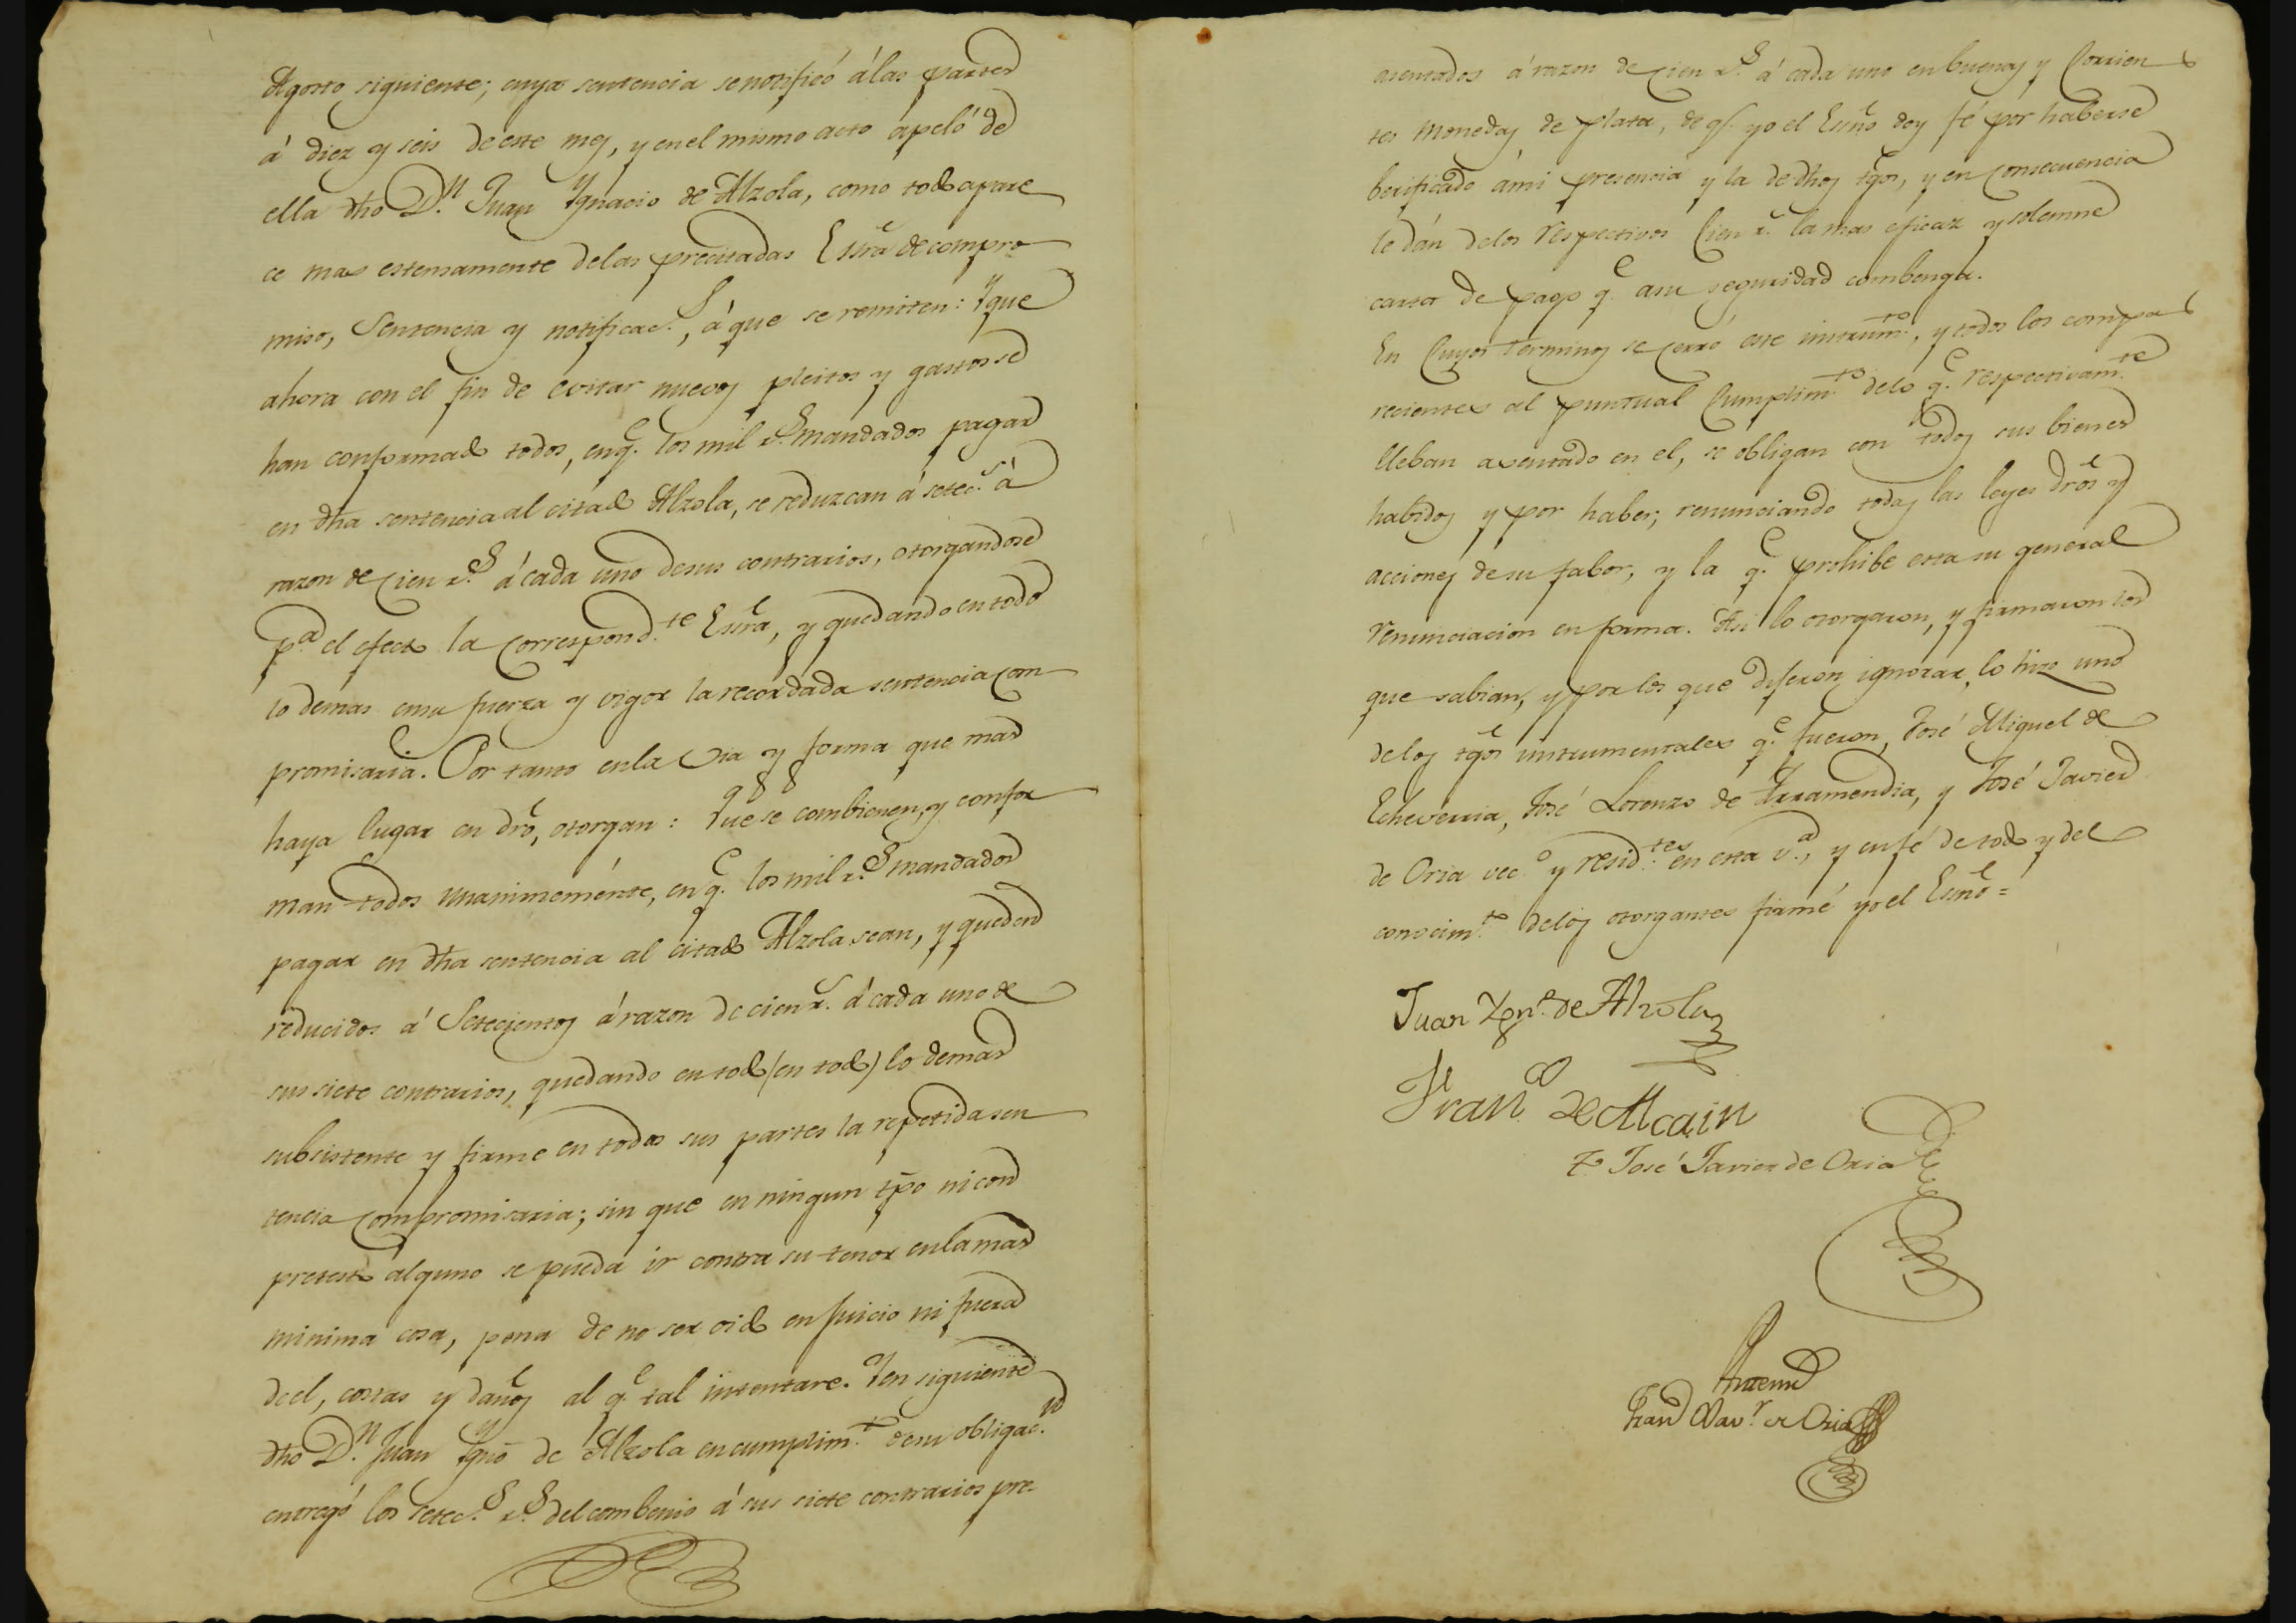 Agosto siguiente; cuya sentencia se notificó á las partes
á diez y seis de este mes, y en el mismo acto apeló de
ella dho D.n Juan Ygnacio de Alzola, como todo apare
ce mas estensamente de las precitadas Essra de compro-
miso, Sentencia y notificac.s, á que se remiten: Y que
ahora con el fin de evitar nuevos pleitos y gastos se
han conformado todos, en q.e los mil r.s mandados pagar
en dha sentencia al citado Alzola, se reduzcan á setec.s á
razon de cien r.s á cada uno de sus contrarios, otorgandose
p.a el efecto la correspond.te Essra, y quedando en todo
lo demas en su fuerza y vigor la recordada sentencia com
promisaria. Por tanto en la via y forma que mas
haya lugar en dro, otorgan: Que se combienen, y confor
man todos unanimemente, en q.e los mil r.s mandados
pagar en dha sentencia al citado Alzola sean, y queden
reducidos á Setecientos á razon de cien r.s á cada uno de
sus siete contrarios, quedando en todo (en todo) lo demas
subsistente y firme en todas sus partes la repetida sen
tencia compromisaria; sin que en ningun tpo ni con
pretesto alguno se pueda ir contra su tenor en la mas
minima cosa, pena de no ser oido en juicio ni fuera
de el, costas y daños al q.e tal intentare. Y en siguiente
dho D.n Juan Ygno de Alzola en cumplim.to de su obligac.n
entregó los setec.s r.s del combenio á sus siete contrarios pre-
sentados á razon de cien r.s á cada uno en buenas y Corrien
tes monedas de plata, de q.e yo el Essno doy fé por haberse
berificado á mi presencia y la de dhos tgos, y en consecuencia
le dán de los respectivos Cien r.s la mas eficaz y solemne
carta de pago q.e a su seguridad combenga.
En Cuyos terminos se cerró este instrum.to, y todos los compa
recientes al puntual Cumplim.to de lo q.e respectivam.te
lleban asentado en el, se obligan con todos sus bienes
habidos y por haber; renunciando todas las leyes dros y
acciones de su fabor, y la q.e prohibe esta su general
renunciacion en forma. Asi lo otorgaron, y firmaron los
que sabian, y por los que dijeron ignorar, lo hizo uno
de los tgos instrumentales q.e fueron, José Miguel de
Echeverria, José Lorenzo de Arramendia, y José Javier
de Oria vec.o y resid.tes en esta v.a, y en fé de todo y del
conocim.to de los otorgantes firmé yo el Essno =
Juan Ygn.o de Alzola
Fran.co de Alcain
T.o José Javier de Oria
Antemi
Fran Xav.r de Oria